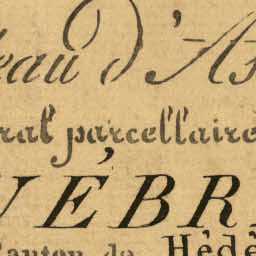 eau d'As
ral parcellaire
VÉBR
Canton de Hédé